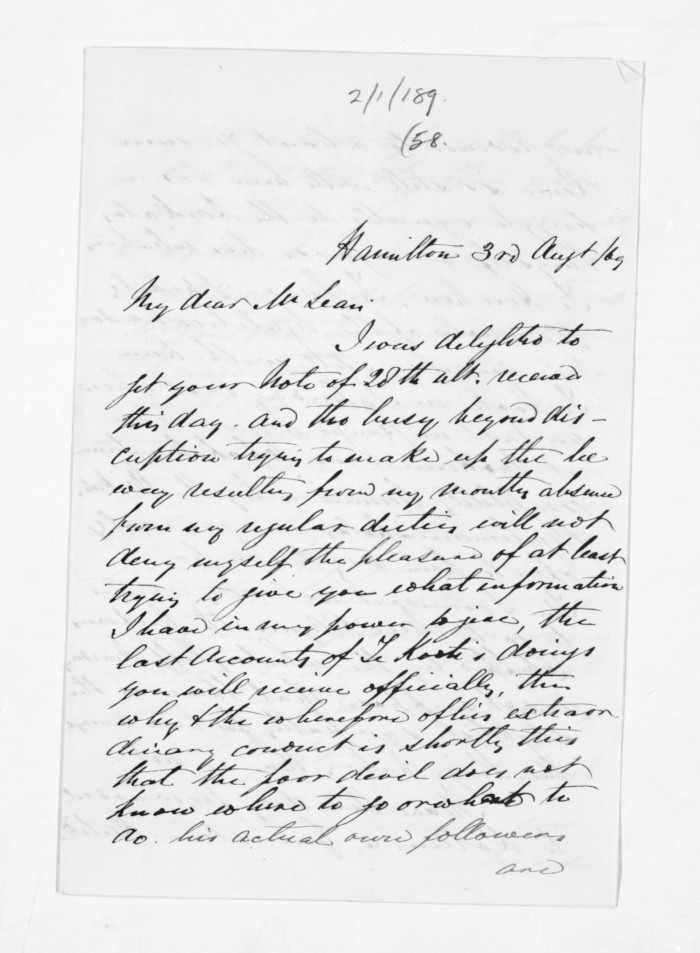 2/1/189.
(58.
Hamilton 3rd Augt /69
My dear McLean
I was delighted to
get your Note of 28th ult. received
this day. and tho busy beyond dis-
cription trying to make up the lee
way resulting from my months absence
from my regular duties will not
deny myself the pleasure of at least
trying to give you what information
I have in my power to give, the
last accounts of Te Kooti's doings
you will receive officially, the
why & the wherefore of his extraor
dinary conduct is shortly this
that the poor devil does not
know where to go or what to
do. his actual own followers
are